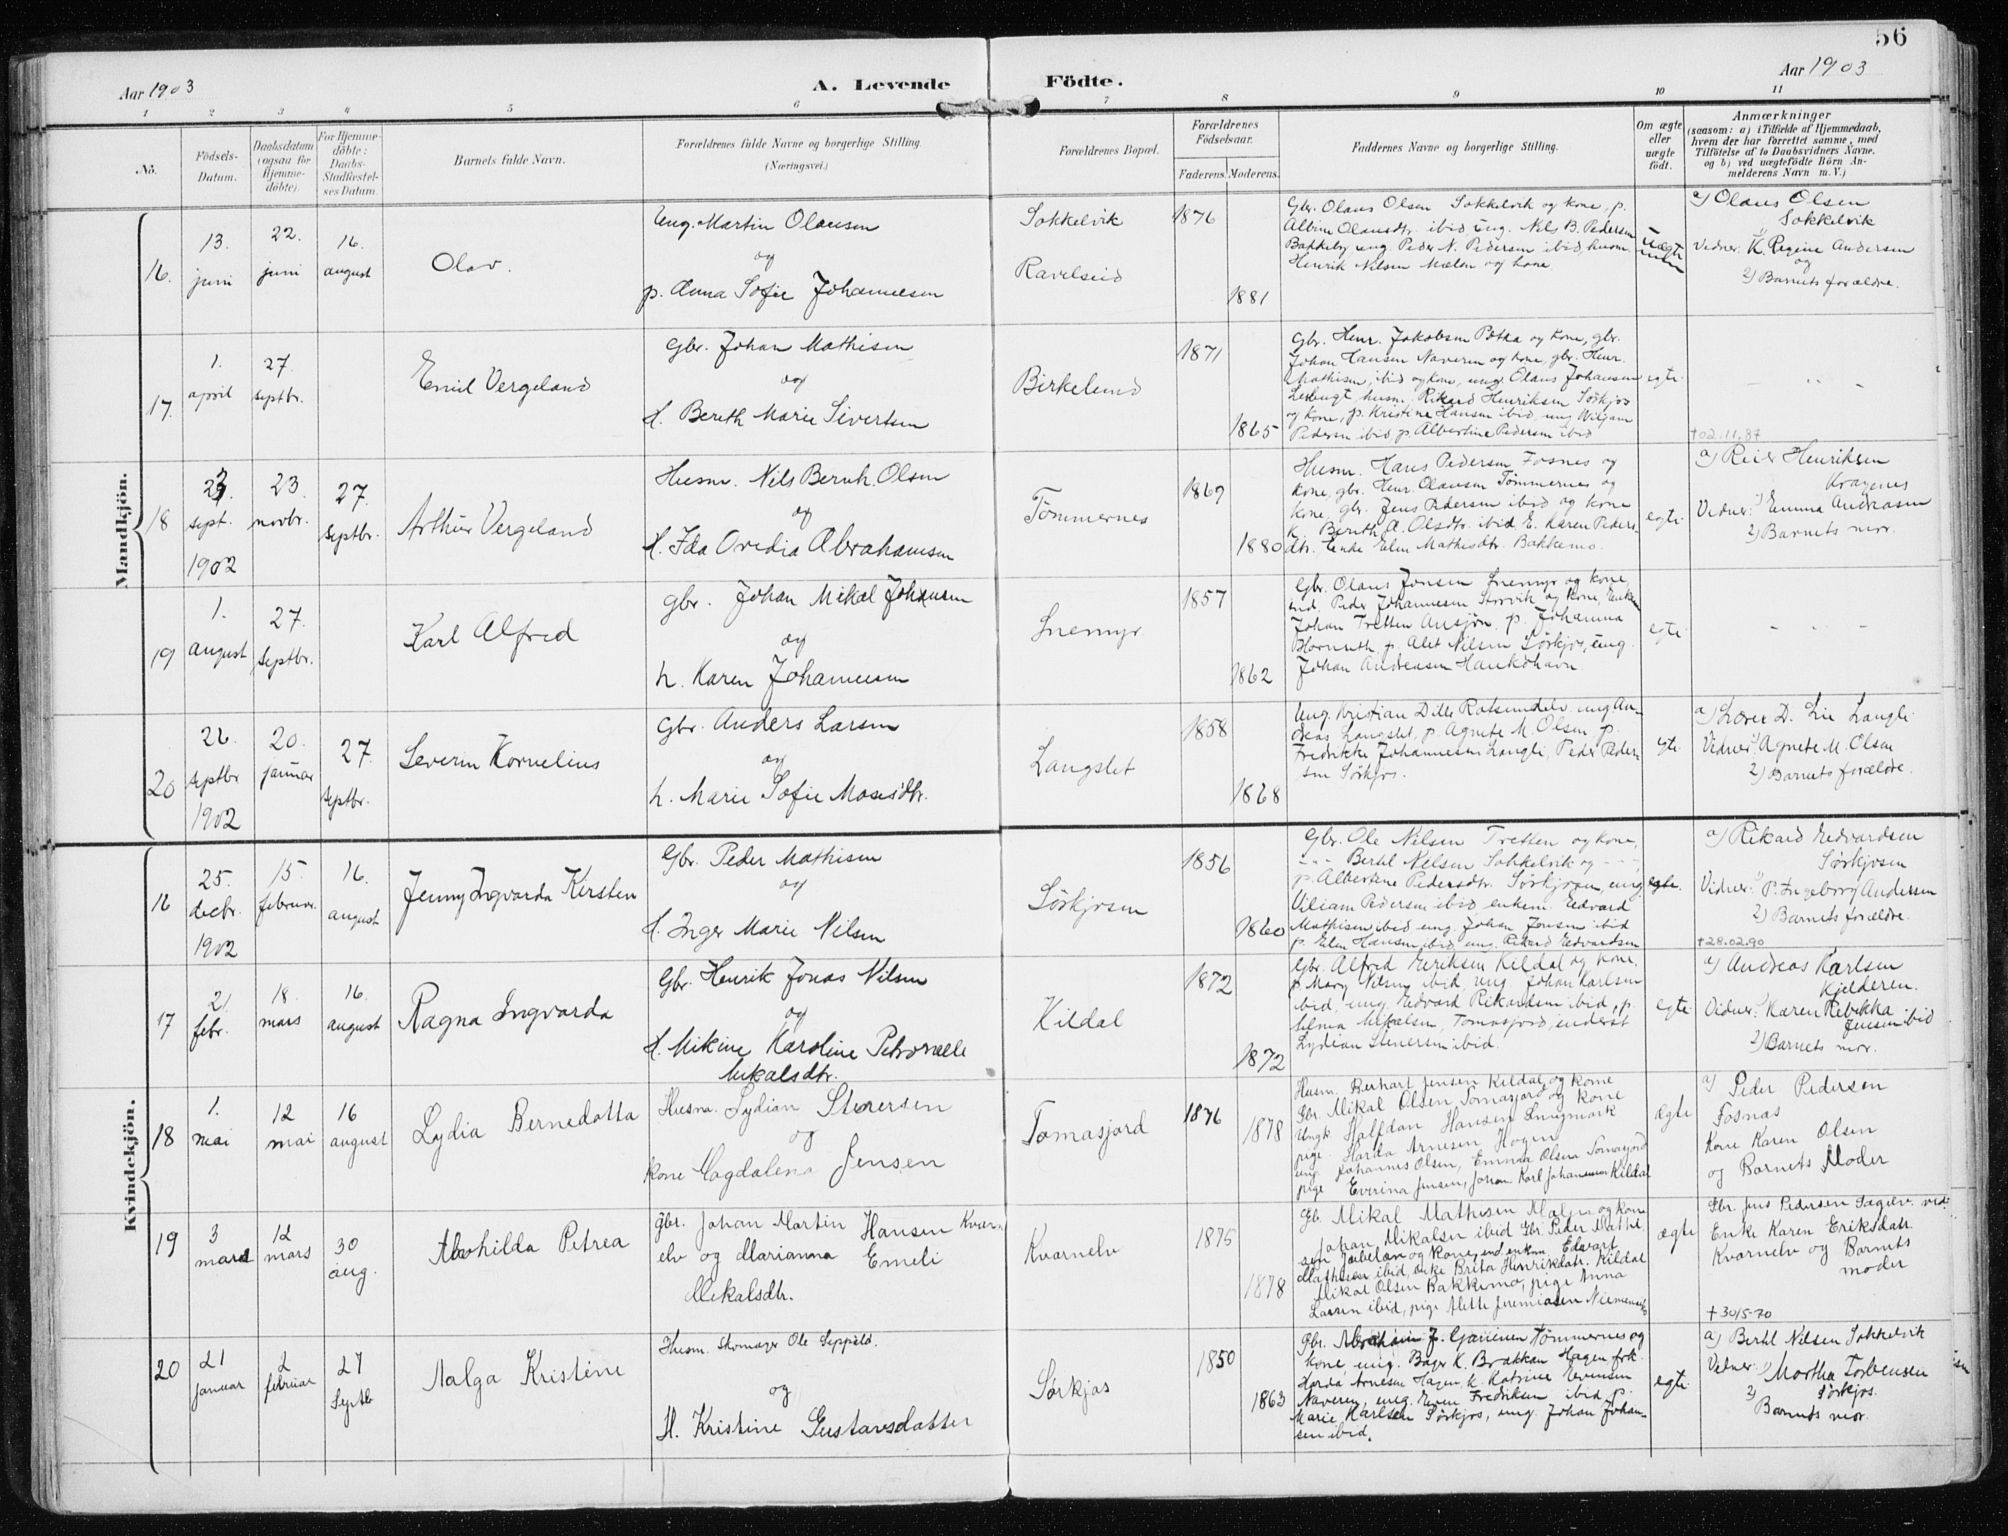 56
Aar 1903
A. Levende Födte.
Aar 1903
1 2 3 4 5 6 7 8 9 10 11
No.
Födsels-Datum.
Daabsdatum (ogsaa for Hjemme-döbte).
For Hjemme-döbte: Daabs-Stadfæstel-ses Datum.
Barnets fulde Navn.
Forældrenes fulde Navne og borgerlige Stilling.
(Næringsvei.)
Forældrenes Bopæl.
Forældrenes Födselsaar.
Faderens. Moderens.
Faddernes Navne og borgerlige Stilling.
Om ægte eller uægte födt.
Anmærkninger
(saasom: a) i Tilfælde af Hjemmedaab,
hvem der har forrettet samme, med
Tilföielse af to Daabsvidners Navne.
og b) ved uægtefödte Börn An-
melderens Navn m. V.)
Mandkjön.
16.
13. juni
22. juni
16. august
Olav.
Ung. Martin Olausen
og
p. Anna Sofie Johannesen
Sokkelvik
Ravelseid
1876
1881
Gbr. Olaus Olsen Sokkelvik og kone, p.
Albine Olausdtr. ibid ung. Nils B. Pedersen
Bakkeby ung. Peder N. Pedersen ibid, husm.
Henrik Nilsen Mælen og kone
uægte
a) Olaus Olsen
Sokkelvik
Vidner: 1) K. Regine Andersen
og
2) Barnets forældre.
17.
1. april
27. septbr.
Emil Vergeland
Gbr. Johan Mathisen
og
H. Bereth Marie Sivertsen
Birkelund
1871
1865
Gbr. Henr. Jakobsen Potka og kone, gbr.
Johan Hansen Naveren og kone, gbr. Henr.
Mathisen, ibid og kone, ung. Olaus Johansen
husm. Rikard Henriksen Sørkjos
og kone, p. Kristine Hansen ibid, ung Wiljam
Pedersen ibid p. Albertine Pedersen ibid
egte.
- " -
+02.11.87
18
23. sept. 1902
23. novbr.
27. septbr.
Arthur Vergeland
Husm. Nils Bernh. Olsen
og
H. Ida Ovedia Abrahamsen
Tømmernes
1869
1880
Husm. Hans Pedersen Fosnes og
kone, gbr. Henr. Olausen Tømmernes og
kone, gbr. Jens Pedersen ibid og kone
K. Bereth A. Olsdtr. ibid E. Karen Peders
dtr. Enke Elen Mathisdtr. Bakkemo.
egte.
a) Reier Henriksen
Vidner: 1) Emma Andreasen
2) Barnets mor.
19
1. august
27. septbr.
Karl Alfred
gbr. Johan Mikal Johansen
og
h. Karen Johannesen
Snemyr
1857
1862
Gbr. Olaus Jonsen Snemyr og kone,
ind. Peder Johannesen Storvik og kone, Enkem
Johan Tretten p. Johanna
p. Alet Nilsen Sørkjos, ung.
Johan Andreasen Haukøhavn.
egte.
- - -
20
26. septbr 1902
20. januar
27. septbr.
Severin Kornelius
Gbr. Anders Larsen
og
h. Marie Sofie Mosesdtr.
Langslet
1858
1868
Ung. Kristian Dille Rotsundelv. ung An-
dreas Langslet, p. Agnete M. Olsen p.
Fredrikke Johannesen Langli, Peder Peder-
sen Sørkjos.
egte.
a) Lærer D. Lie Langli.
Vidner: 1) Agnete M. Olsen
2) Barnets forældre.
Kvindekjön.
16
25. decbr. 1902
15. februar.
16. august
Jenny Ingvarda Kirsten
Gbr. Peder Mathisen
og
H. Inger Marie Nilsen
Sørkjosen
1856
1860
Gbr. Ole Nilsen Tretten og kone,
- " - Bertil Nilsen Sokkelvik og - " -
p. Albertine Pedersdtr. Sørkjosen, ung
Viliam Pedersen ibid, enkem. Edvard
Mathisen ibid ung. Johan Jensen ibid
p. Elen Hansen ibid ung. Rikard Edvardsen
egte.
a) Rikard Edvardsen
Sørkjosen
Vidner: 1) P. Ingeborg Andersen
2) Barnets forældre.
+28.02.90
17
21. febr.
18. mars
16. august
Ragna Ingvarda
Gbr. Henrik Jonas Nilsen
og
H. Mikine Karoline Petronelle
Mikalsdtr.
Kildal
1872
1872
Gbr. Alfred Eriksen Kildal og kone,
p. Mary Nilsen ibid, ung. Johan Karlsen
ibid, ung. Edvard Rikardsen ibid, p.
Mikalsen, Tomasjord, inderst
Lydian Stenersen ibid.
egte.
a) Andreas Karlsen
Kjelderen.
Vidner: 1) Karen Rebekka
Jensen ibid
2) Barnets mor.
18
1. mai
12 mai
16 august
Lydia Bernedotta
Husm. Lydian Stenersen
og
kone Magdalena Jensen
Tomasjord
1876
1878
Husm. Berhart Jensen Kildal og kone
Gbr. Mikal Olsen, Tomasjord og kone
Ungk. Halfdan Hansen
pige. Harda Arnesen Hagen
ung. Johannes Olsen, Emma Olsen Tomasjord
pige Everina Jensen, Johan Karl Johannesen Kildal
ægte
a) Peder Pedersen
Fosnas
Kone Karen Olsen
og Barnets Moder
19
3 mars
12 mars
30 aug.
Mathilda Petrea
gbr. Johan Martin Hansen Kvarn-
elv og Marianna Emeli
Mikalsdtr.
Kvarnelv
1875
1878
Gb. Mikal Mathisen og kone
Johan Mikalsen ibid Gbr. Peder Mathi
sen og kone, enkem Edvart
Mathisen ibid, enke Brita Henriksdtr. Kildal
Mikal Olsen Bakkemo, pige Anna
Larsen ibid, pige Alette Jeremiasen
ægte
Gbr. Jens Pedersen Sagelv. vid:
Enke Karen Eriksdatr.
Kvarnelv og Barnets
moder
+ 30/5-70
20
21 januar
2 februar
27 Septb
Aalga Kristine
Husm. Skomager Ole Seppälä.
og
H. Kristine Gustavsdatter
Sørkjos
1850
1863
Gbr. Abraham J. Tømmernes og
kone ung. Bager K. Brakkan Hagen frk.
Harda Arnesen Hagen K. Katrine Evensen
Naveren, ung. Even Fredriksen ibid P.
Marie Karlsen Sørkjos, ung. Johan Johan-
sen ibid.
egte.
a) Bertil Nilsen Sokkelvik
Vidner: 1) Martha Torbensen
Sørkjos.
2) Barnets mor.